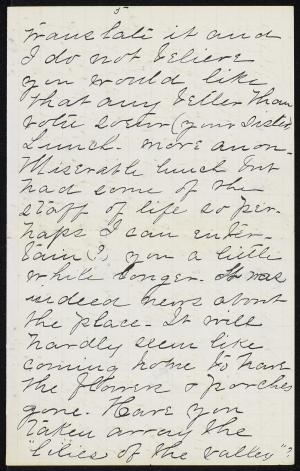 5
translate it and
I do not believe
you would like
that any better than
votre soeur (your sister)
Lunch. more anon.
Miserable lunch but
had some of the
staff of life so per-
haps I can enter-
tain (?) you a little
while longer. It was
indeed news about
the place. It will
hardly seem like
coming home to have
the flowers & porches
gone. Have you
taken away the
"lilies of the valley"?